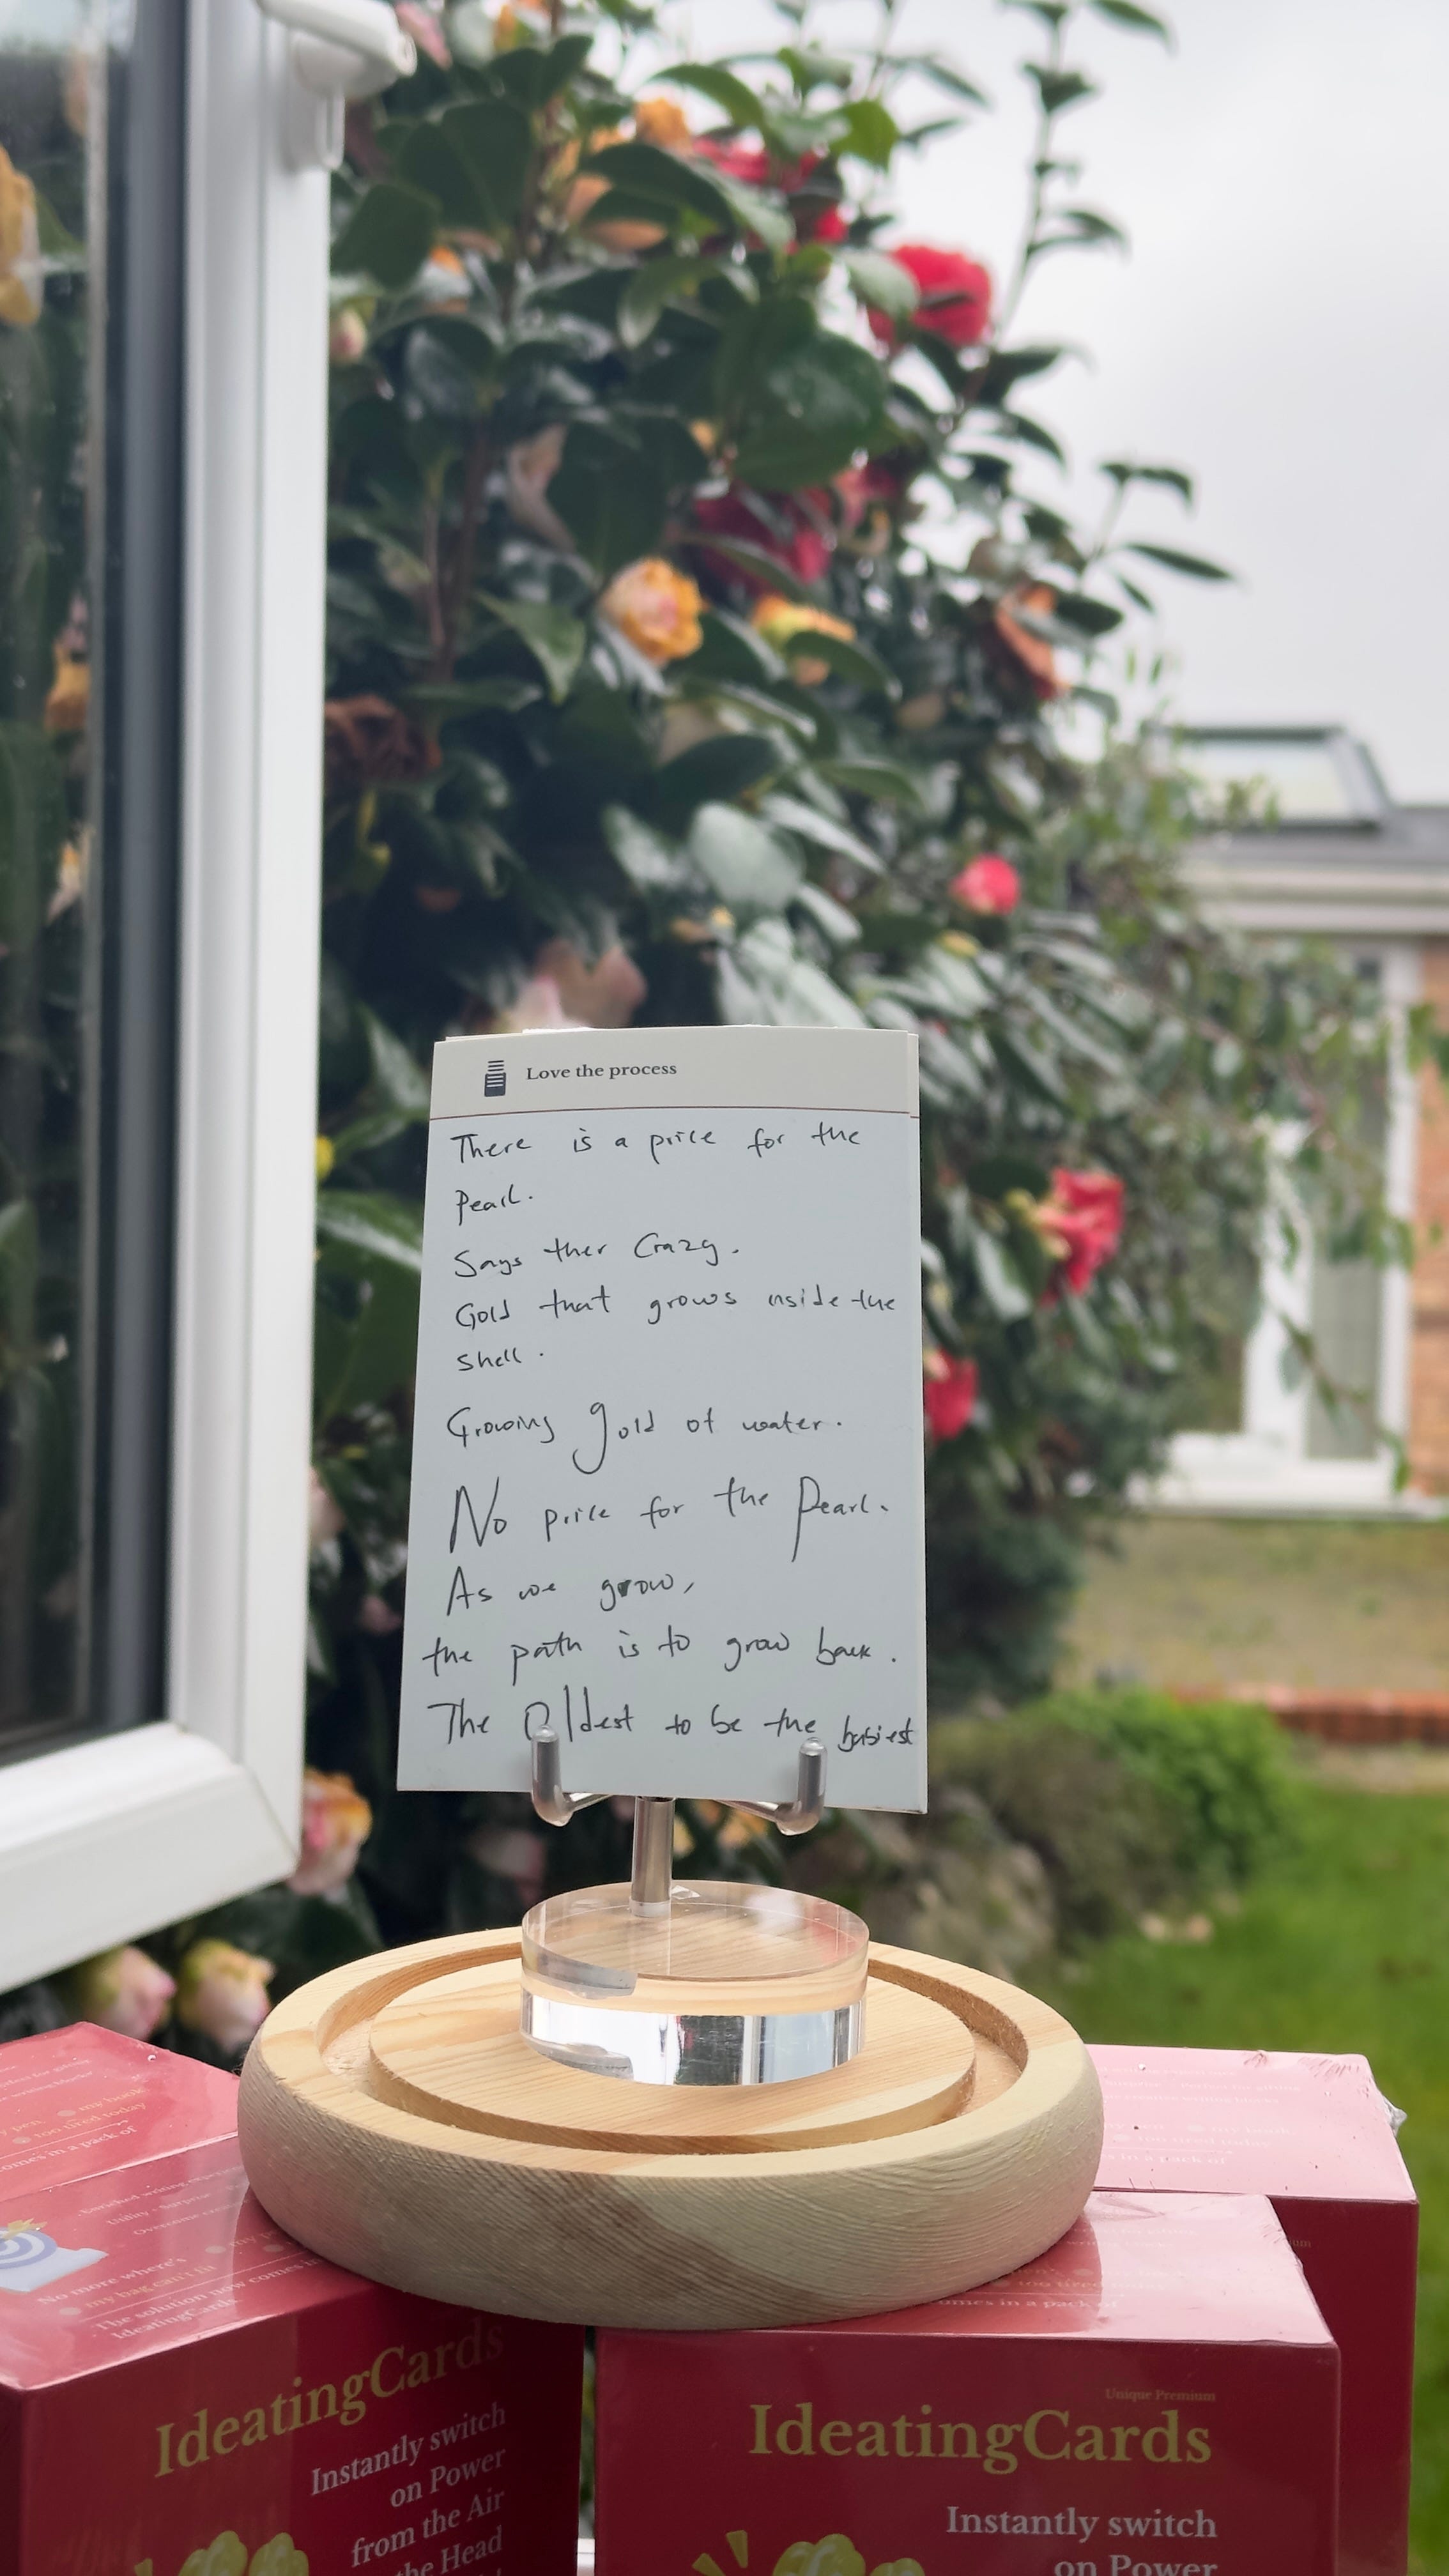 Love the process
There is a price for the
Pearl.
Says ther Crazy.
Gold that grows inside the
shell.
Growing gold of water.
No price for the Pearl.
As we grow,
the path is to grow back.
The Oldest to be the babiest
IdeatingCards
Instantly switch
on Power
from the Air
the Head
Unique Premium
IdeatingCards
Instantly switch
on Power
No more where's
my bag can't fit
The solution now comes in
IdeatingCards
my pen
my book
too tired today
comes in a pack of